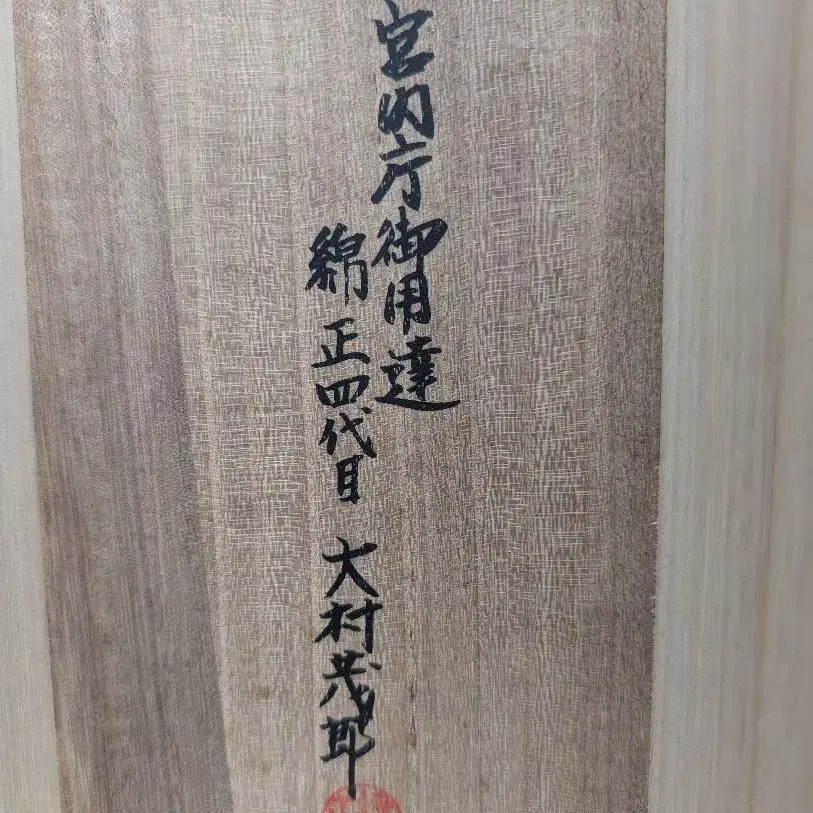 宮内庁御用達
綿正四代目 大村茂郎